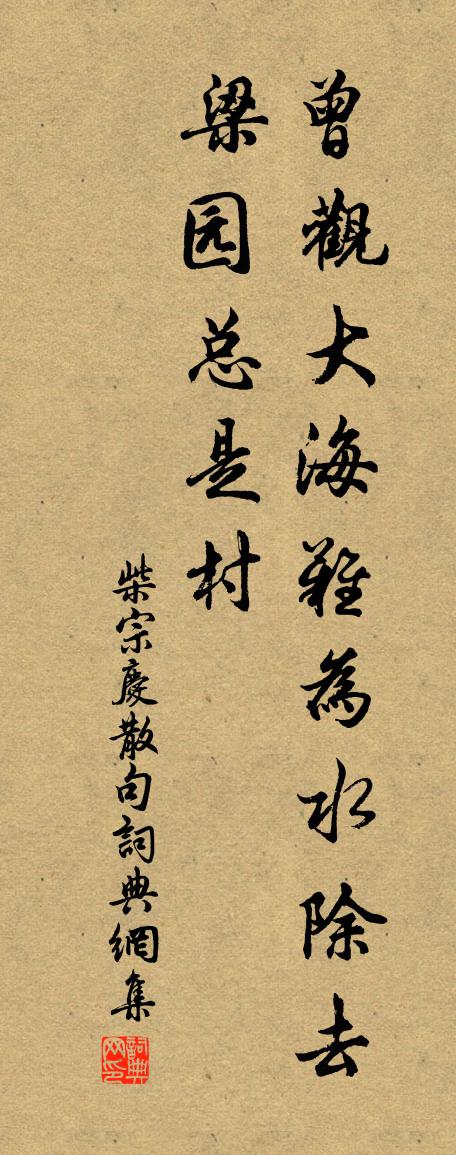 曾觀大海難為水除去
梁园总是村
柴宗慶散句詞典網集
詞典网印